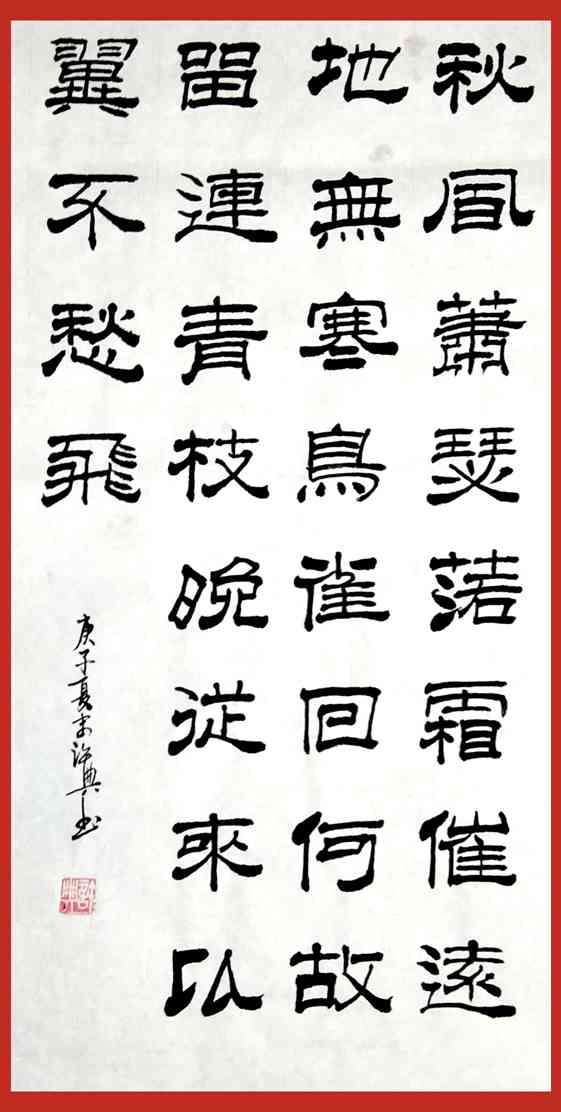 秋風蕭瑟落霜催遠
地無寒鳥雀回何故
留連青枝晚從來以
翼不愁飛
庚子夏末许典书